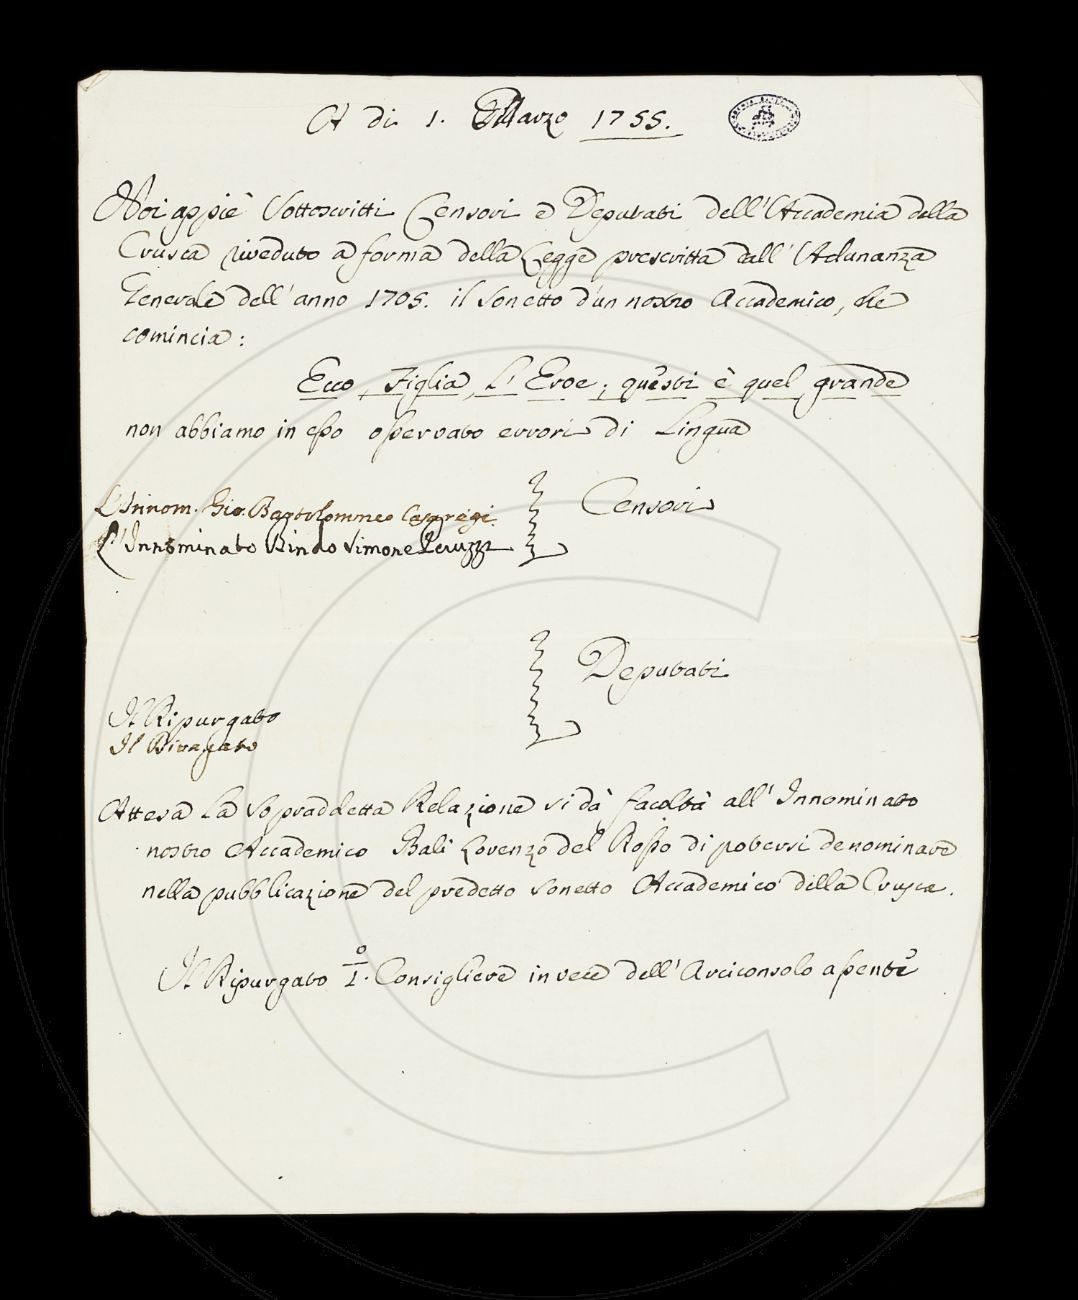 A di 1. Marzo 1755.
Noi appiè Sottoscritti Censori e Deputati dell'Accademia della
Crusca riveduto a forma della Legge prescritta dall'Adunanza
Generale dell'anno 1705. il Sonetto d'un nostro Accademico, che
comincia:
Ecco, Figlia, L'Eroe; questi è quel grande
non abbiamo in esso osservato errori di Lingua
L'Innom. Gio. Bartolommeo Casaregi
L'Innominato Bindo Simone Peruzzi
Censori
Deputati
Il Ripurgato
Il
Attesa la Sopraddetta Relazione si dà facoltà all'Innominato
nostro Accademico Balì Lorenzo del Rosso di potersi denominare
nella pubblicazione del predetto Sonetto Accademico della Crusca.
Il Ripurgato 1.º Consigliere in vece dell'Arciconsolo assente